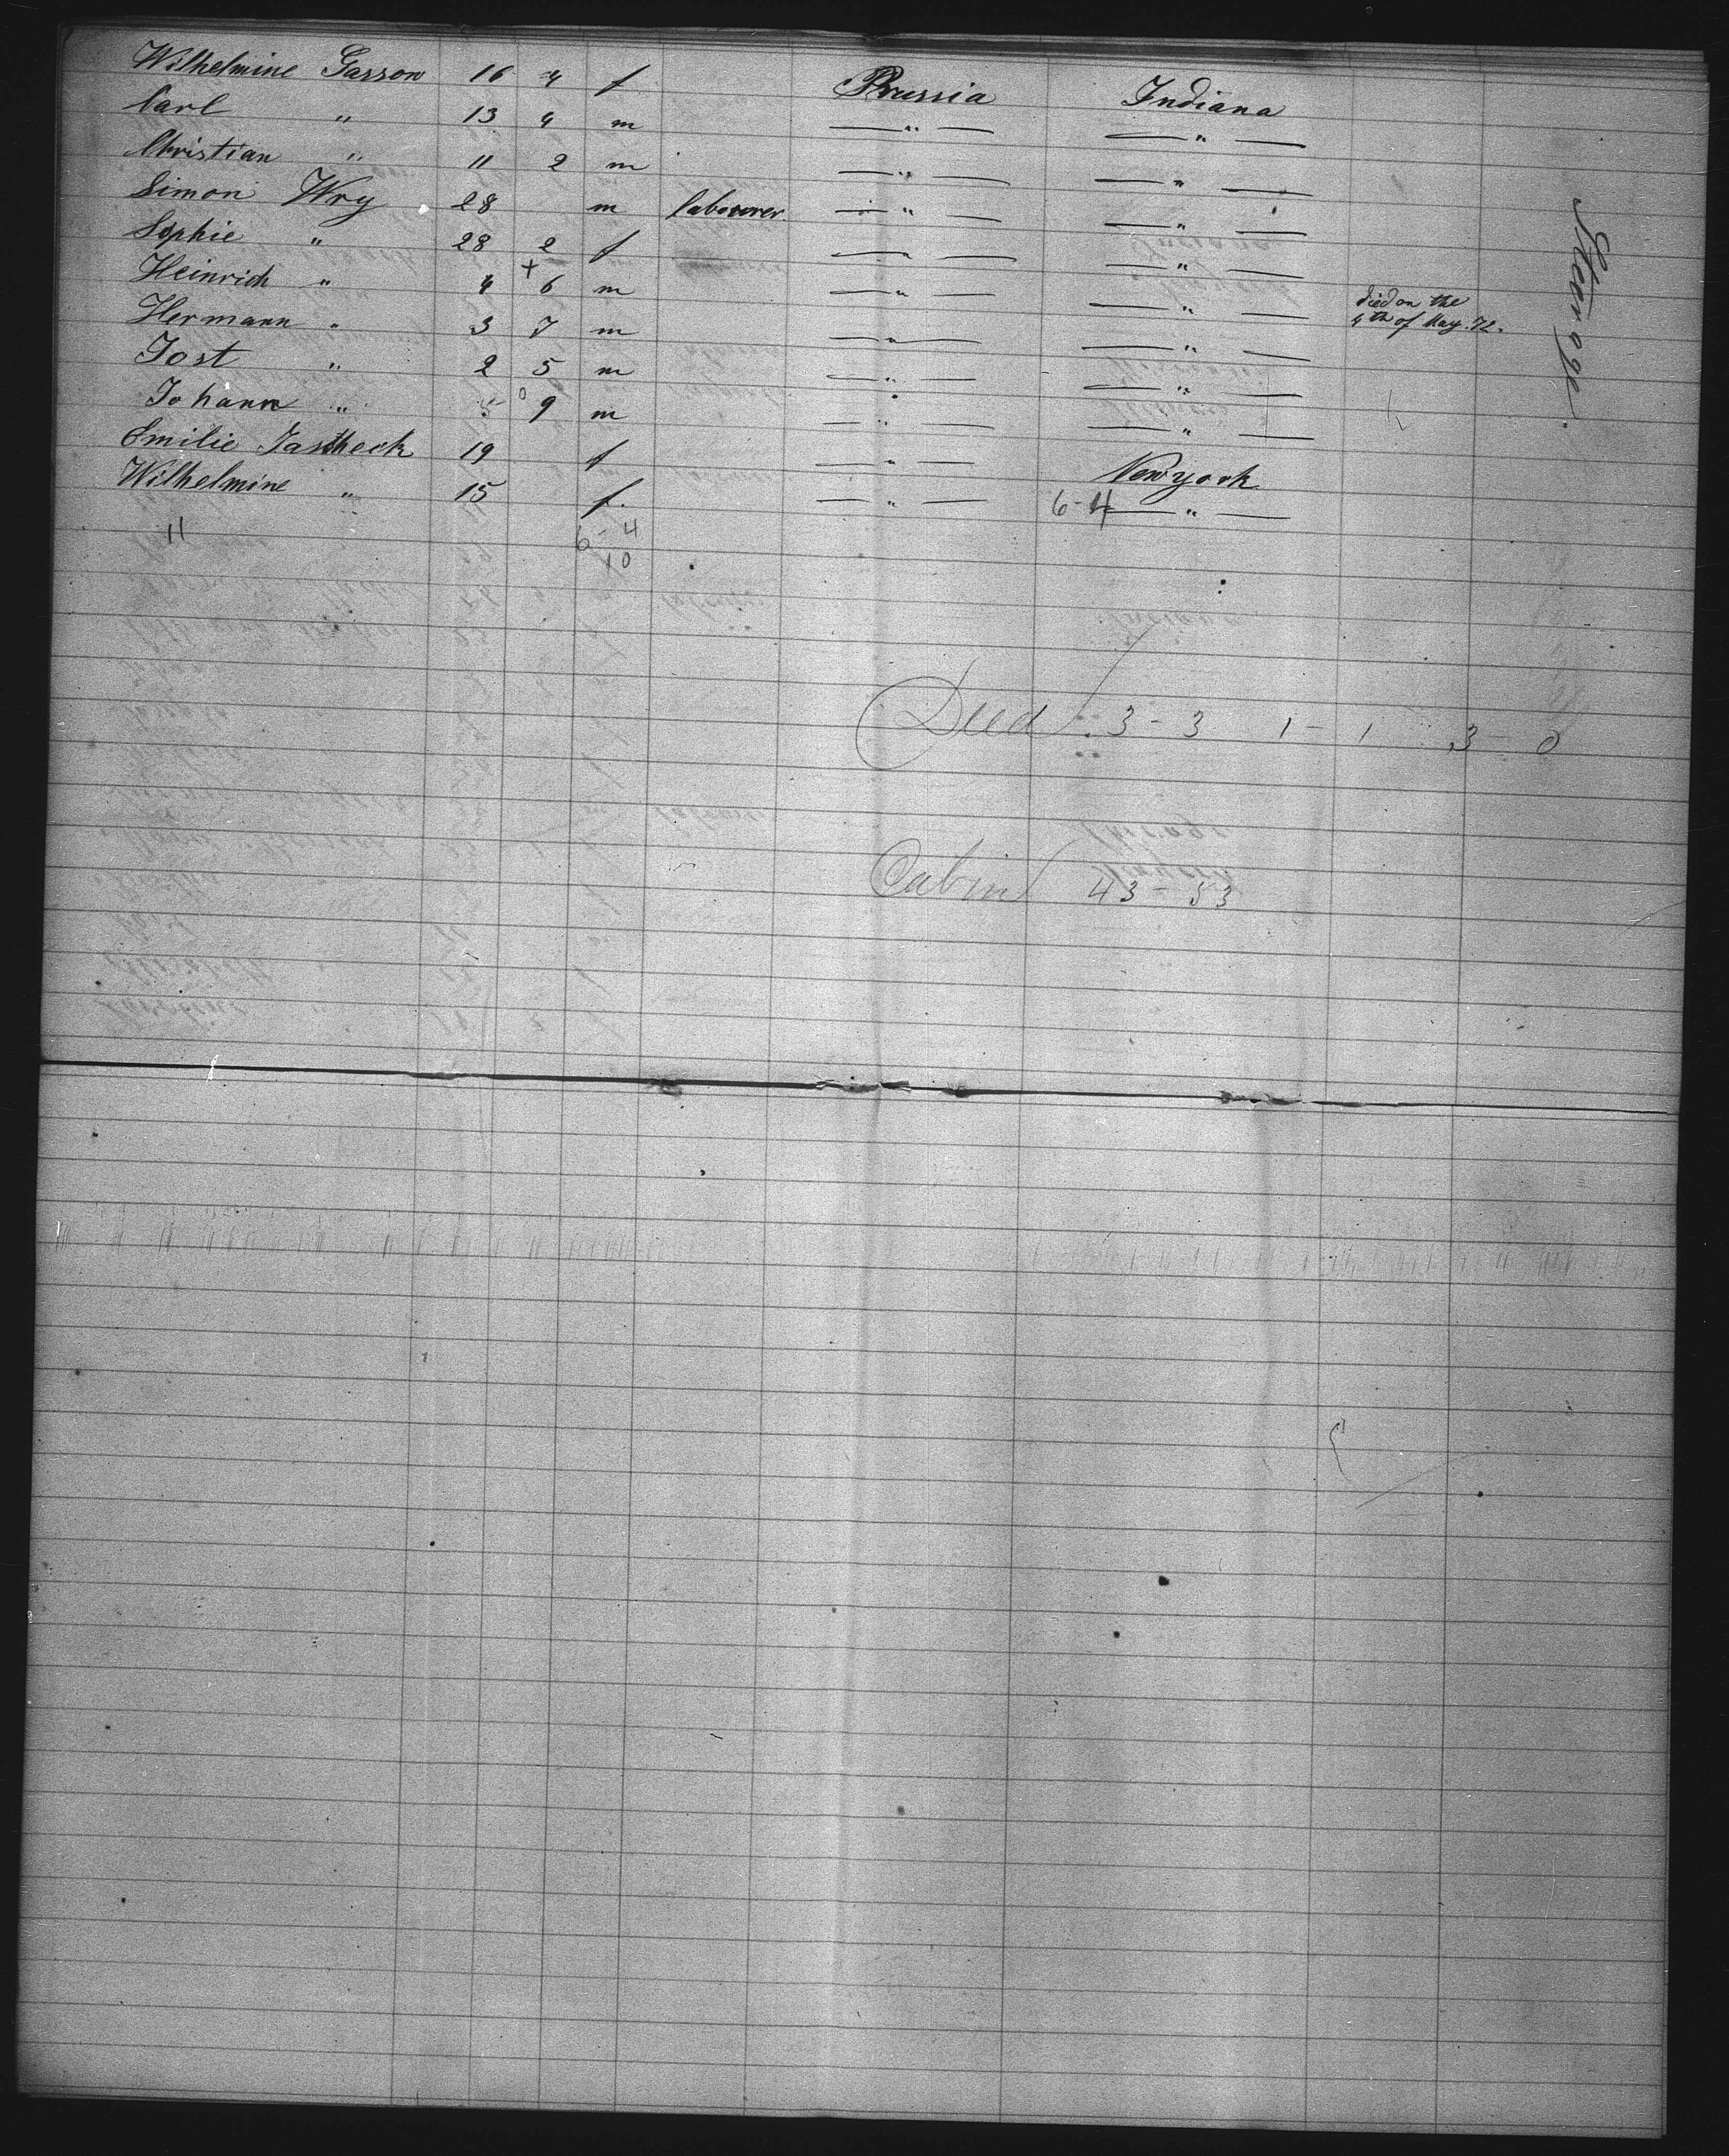 Wilhelmine Gasson 16 4 f Prussia Indiana
Carl " 13 4 m — " — — " —
Christian " 11 2 m — " — — " —
Simon Wry 28 m labourer — " — — " —
Sophie " 28 2 f — " — — " —
Heinrich " 4 + 6 m — " — — " — died on the
4th of May. 72.
Hermann " 3 7 m — " — — " —
Jost " 2 5 m — " — — " —
Johann " 5 0 9 m — " — — " —
Emilie Jastheck 19 f — " — New york
Wilhelmine " 15 f. — " — 6-4 — " —
11 6-4
10
Steerage.
Died 3-3 1-1 3-0
Cabin 43-53